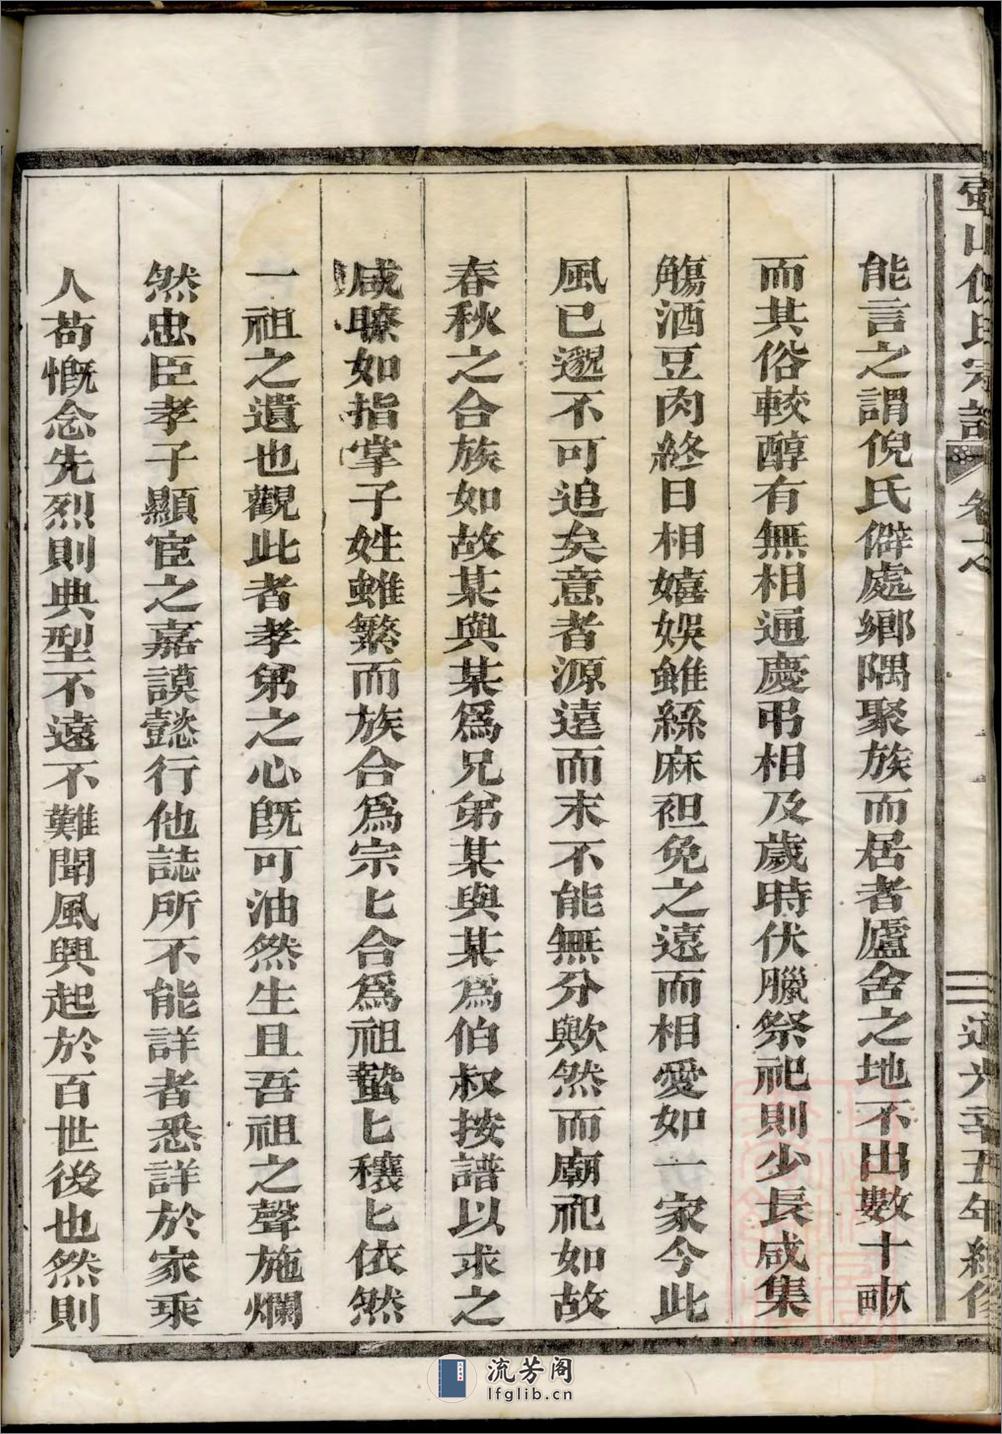 壺山倪氏宗譜 卷之 道光辛丑年經修
能言之謂倪氏僻處鄉隅聚族而居者廬舍之地不出數十畝
而其俗較醇有無相通慶弔相及歲時伏臘祭祀則少長咸集
觴酒豆肉終日相嬉娛雖緦麻袒免之遠而相愛如一家今此
風已邈不可追矣意者源遠而末不能無分歟然而廟祀如故
春秋之合族如故某與某爲兄弟某與某爲伯叔按譜以求之
咸瞭如指掌子姓雖繁而族合爲宗匕合爲祖蟄匕穰匕依然
一祖之遺也觀此者孝弟之心旣可油然生且吾祖之聲施爛
然忠臣孝子顯宦之嘉謨懿行他誌所不能詳者悉詳於家乘
人苟慨念先烈則典型不遠不難聞風興起於百世後也然則
流芳阁
lfglib.cn